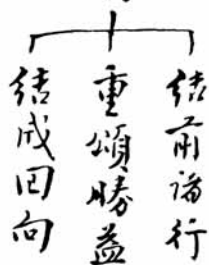 結前諸行
重頌勝益
結成回向